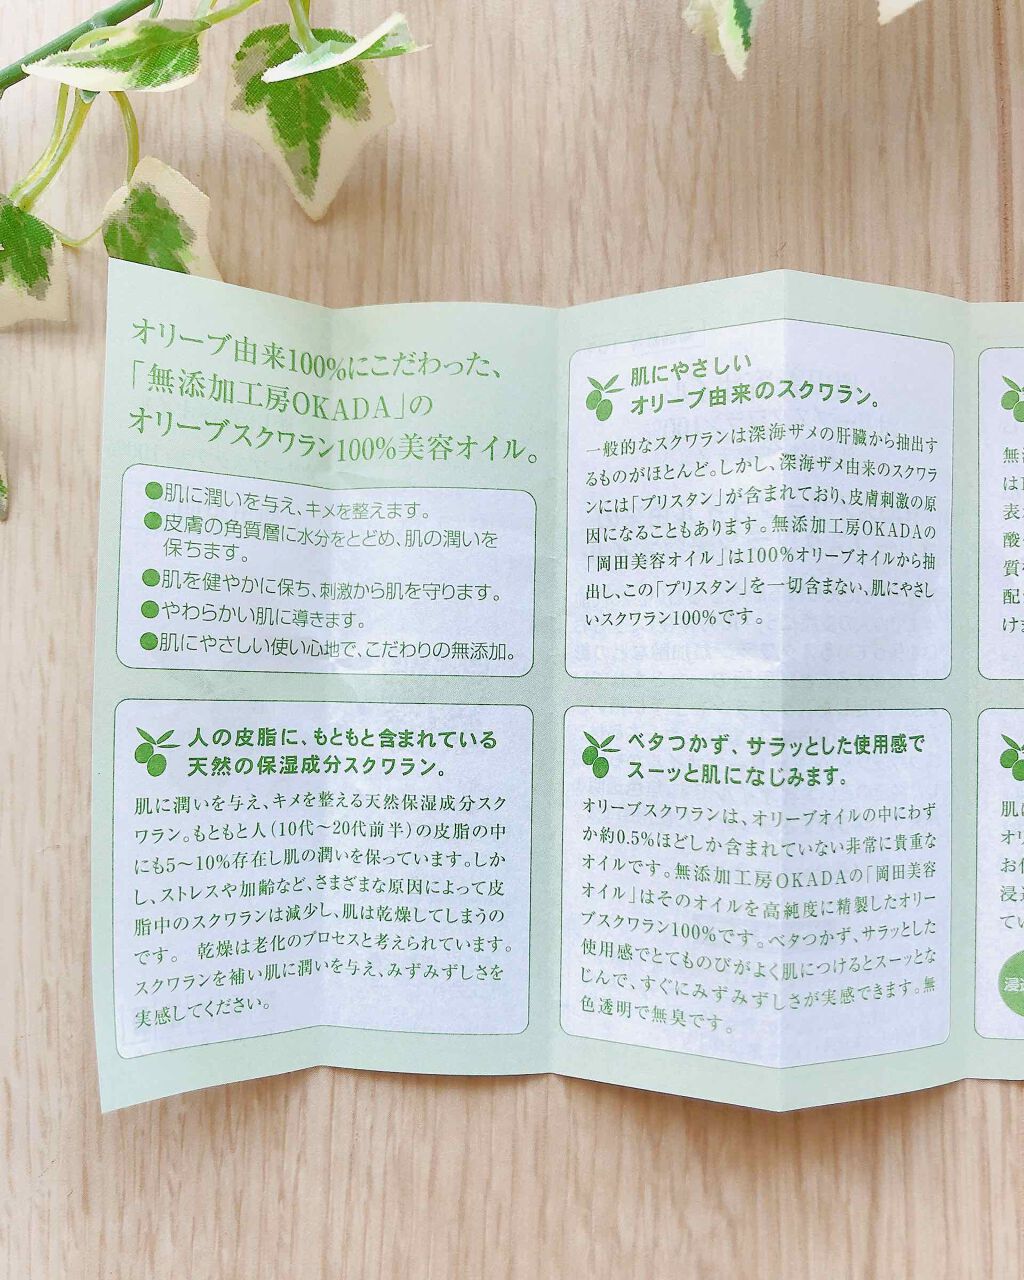 オリーブ由来100%にこだわった、
「無添加工房OKADA」の
オリーブスクワラン100%美容オイル。
●肌に潤いを与え、キメを整えます。
●皮膚の角質層に水分をとどめ、肌の潤いを
保ちます。
●肌を健やかに保ち、刺激から肌を守ります。
●やわらかい肌に導きます。
●肌にやさしい使い心地で、こだわりの無添加。
人の皮脂に、もともと含まれている
天然の保湿成分スクワラン。
肌に潤いを与え、キメを整える天然保湿成分スク
ワラン。もともと人（10代～20代前半）の皮脂の中
にも5～10%存在し肌の潤いを保っています。しか
し、ストレスや加齢など、さまざまな原因によって皮
脂中のスクワランは減少し、肌は乾燥してしまうの
です。 乾燥は老化のプロセスと考えられています。
スクワランを補い肌に潤いを与え、みずみずしさを
実感してください。
肌にやさしい
オリーブ由来のスクワラン。
一般的なスクワランは深海ザメの肝臓から抽出す
るものがほとんど。しかし、深海ザメ由来のスクワラ
ンには「プリスタン」が含まれており、皮膚刺激の原
因になることもあります。無添加工房OKADAの
「岡田美容オイル」は100%オリーブオイルから抽
出し、この「プリスタン」を一切含まない、肌にやさし
いスクワラン100%です。
ベタつかず、サラッとした使用感で
スーッと肌になじみます。
オリーブスクワランは、オリーブオイルの中にわず
か約0.5%ほどしか含まれていない非常に貴重な
オイルです。無添加工房OKADAの「岡田美容
オイル」はそのオイルを高純度に精製したオリー
ブスクワラン100%です。ベタつかず、サラッとした
使用感でとてものびがよく肌につけるとスーッとな
じんで、すぐにみずみずしさが実感できます。無
色透明で無臭です。
無
は
表
酸
質
配
けま
肌
オリ
お
浸
てい
浸